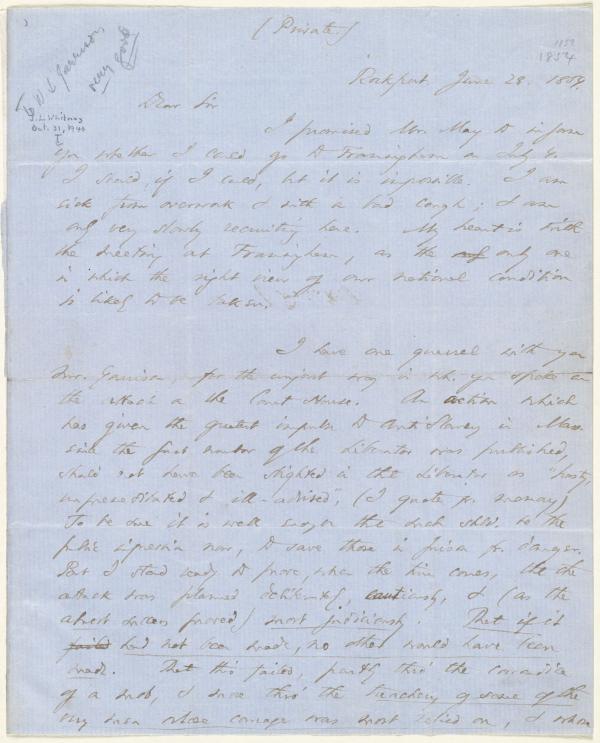 (Private)
1854
1854
To W L Garrison
very good
J.L. Whitney
Oct. 31, 1940
Rockport June 28. 1854.
Dear Sir
I promised Mr. May to inform
you whether I could go to Framingham on July 4.
I should, if I could, but it is impossible. I am
sick from overwork & with a bad cough; & am
only very slowly recruiting here. My heart is with
the meeting at Framingham, as the only one
in which the right view of our national condition
is likely to be taken.
I have one quarrel with you
Mr. Garrison, for the unjust way in wh. you spoke on
the attack on the Court House. An action which
has given the greatest impulse to Anti Slavery in Mass.
since the first number of the Liberator was published,
should not have been slighted in the Liberator as "hasty,
unpremeditated & ill-advised", (I quote fr. memory)
To be sure it is well enough that such shld. be the
public impression now, to save those in prison fr. danger.
But I stand ready to prove, when the time comes, that the
attack was planned deliberately, cautiously, & (as the
almost success proved) most judiciously. That if it
failed had not been made, no other would have been
made. That this failed, partly thro' the cowardice
of a mob, & more thro' the treachery of some of the
very men whose courage was most relied on, & whose